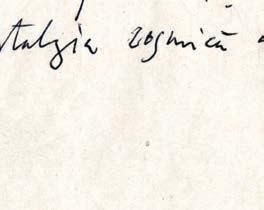 stalgia cosmică